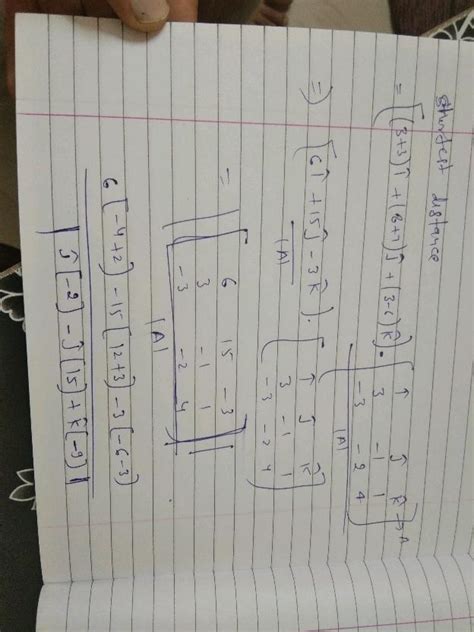 shortest distance
= [(3+3)î + (8+7)ĵ + (3-6)k̂] . [î ĵ k̂ → A
3 -1 1
-3 -2 4]
|A|
⇒ [6î + 15ĵ - 3k̂] . [î ĵ k̂
3 -1 1
-3 -2 4]
|A|
= |[6 15 -3
3 -1 1
-3 -2 4]|
|A|
6[-4+2] - 15[12+3] - 3[-6-3]
|î[-2] - ĵ[15] + k̂[-9]|